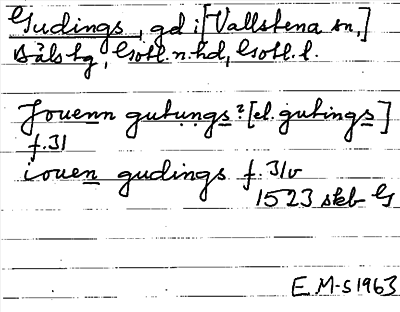 Gudings, gd i [Vallstena sn,]
Bäls tg, Gotl. n. hd, Gotl. l.
Jouenn gutungs? [el. gutings]
f. 31
iouen gudings f. 31v
1523 skb G
E. M-S 1963